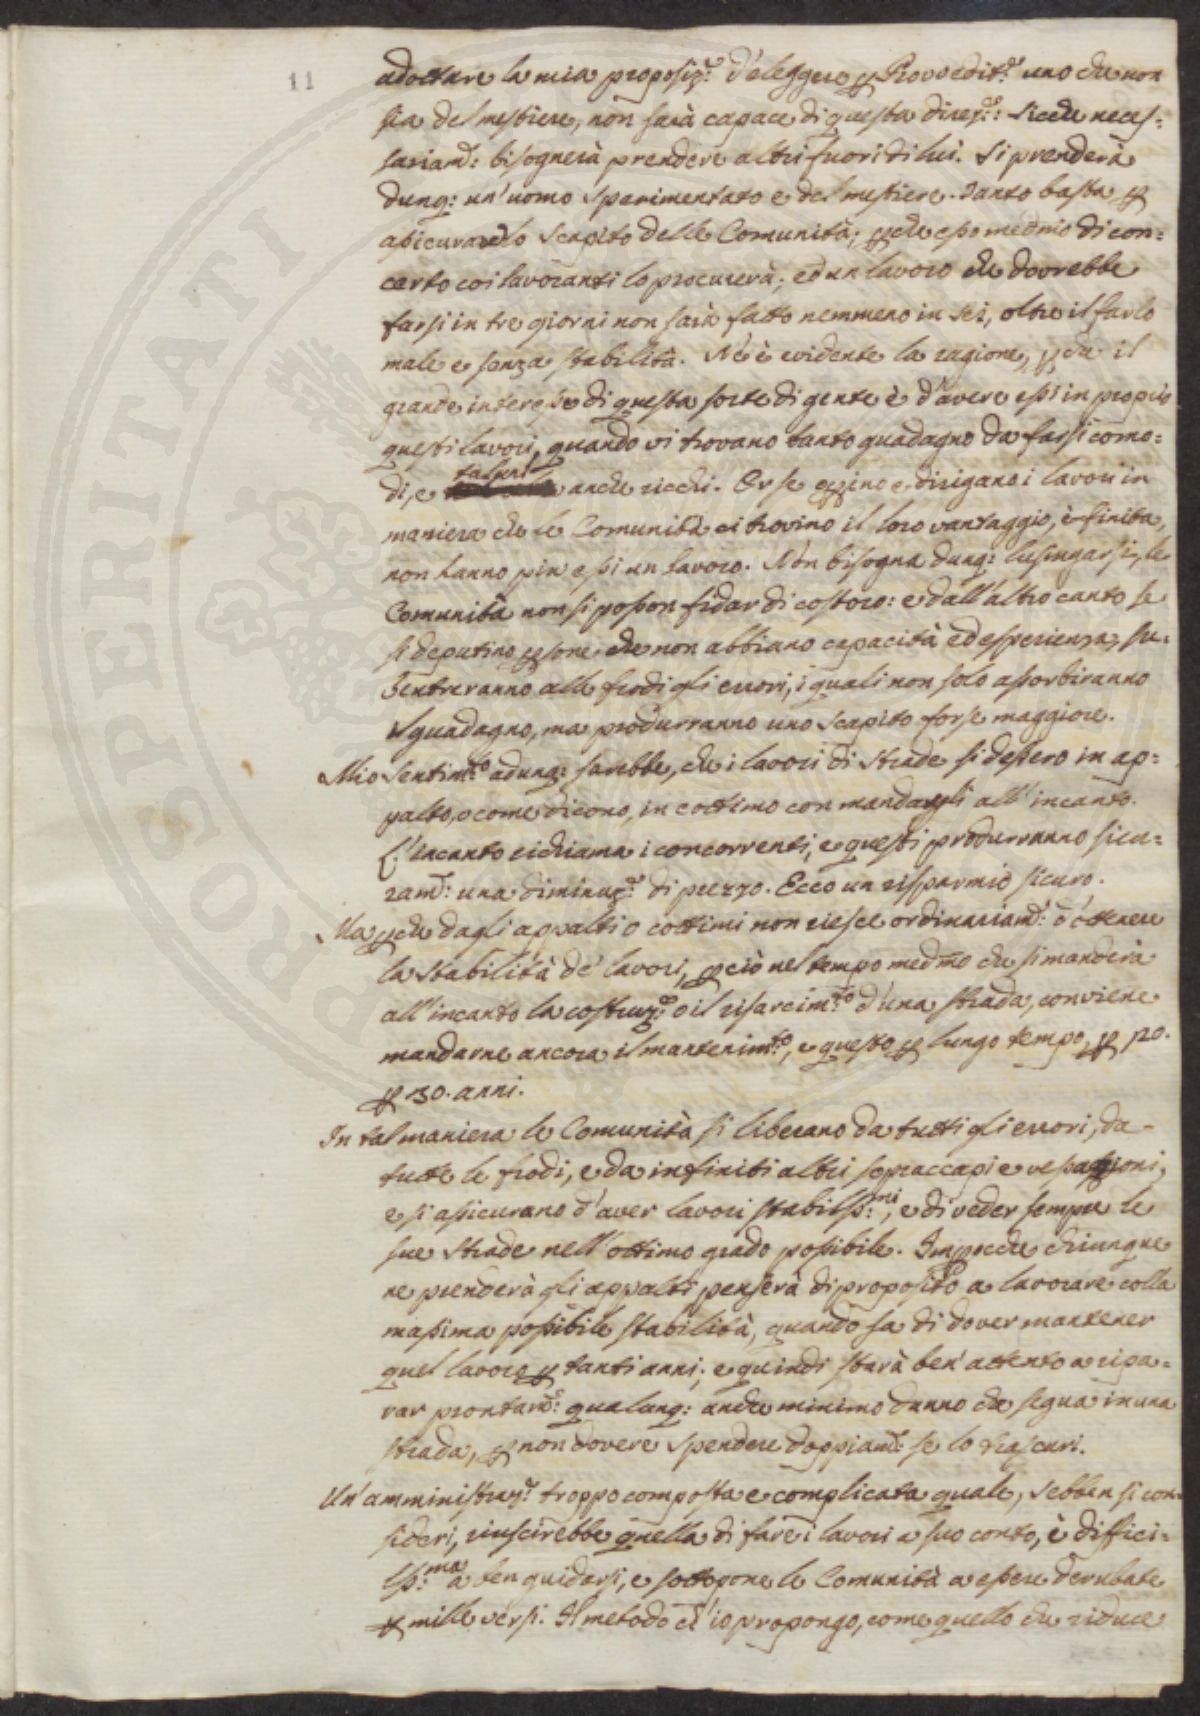 11
adottare la mia proposiz.e d'eleggere p Provvedit.e uno che non
sia del mestiere, non sarà capace di questa direz.e: sicché neces=
sariam.: bisognerà prendere altri fuori di lui. Si prenderà
dunq: un'uomo sperimentato e del mestiere. Tanto basta p
assicurare lo scapito delle Comunità; pche esso medmo di con=
certo coi lavoranti lo procurerà; ed un lavoro che dovrebbe
farsi in tre giorni non sarà fatto nemmeno in sei, oltre il farlo
male e senza stabilità. Né è evidente la ragione, pche il
grande interesse di questa sorte di gente è d'avere essi in proprio
questi lavori, quando vi trovano tanto guadagno da farsi como=
di, e talora anche ricchi. Or se oprino e dirigano i lavori in
maniera che le Comunità ci trovino il loro vantaggio, è finita,
non hanno più essi un lavoro. Non bisogna dunq: lusingarsi, le
Comunità non si posson fidar di costoro: e dall'altro canto se
si deputino psone che non abbiano capacità ed esperienza, su=
bentreranno alle frodi gli errori, i quali non solo assorbiranno
il guadagno, ma produrranno uno scapito forse maggiore.
Mio sentim.to adunq: sarebbe, che i lavori di strade si dessero in ap=
palto, o come dicono, in cottimo con mandargli all'incanto.
L'incanto richiama i concorrenti, e questi produrranno sicu=
ram.: una diminuz.e di prezzo. Ecco un risparmio sicuro.
Ma pche dagli appalti o cottimi non riesce ordinariam.: d'ottenere
la stabilità de' lavori, pciò nel tempo medmo che si manderà
all'incanto la costruz.e o il risarcim.to d'una strada, conviene
mandarne ancora il mantenim.to, e questo p lungo tempo, p 20.
p 30. anni.
In tal maniera le Comunità si liberano da tutti gli errori, da
tutte le frodi, e da infiniti altri sopraccapi e vessazioni,
e si assicurano d'aver lavori stabiliss.mi, e di veder sempre le
sue strade nell'ottimo grado possibile. Imperocche chiunque
ne prenderà gli appalti penserà di proposito a lavorare colla
massima possibile stabilità, quando sa di dover mantener
quel lavoro p tanti anni; e quindi starà ben' attento a ripa=
rar prontam.: qualunq: anche minimo danno che segua in una
strada, p non dovere spendere doppiam.: se lo trascuri.
Un'amministraz.e troppo composta e complicata quale, sebben si con=
sideri, riuscirebbe quella di fare i lavori a suo conto, è diffici=
liss.ma a ben guidarsi, e sottopone le Comunità a essere derubate
p mille versi. Il metodo ch'io propongo, come quello che riduce
PROSPERITATI